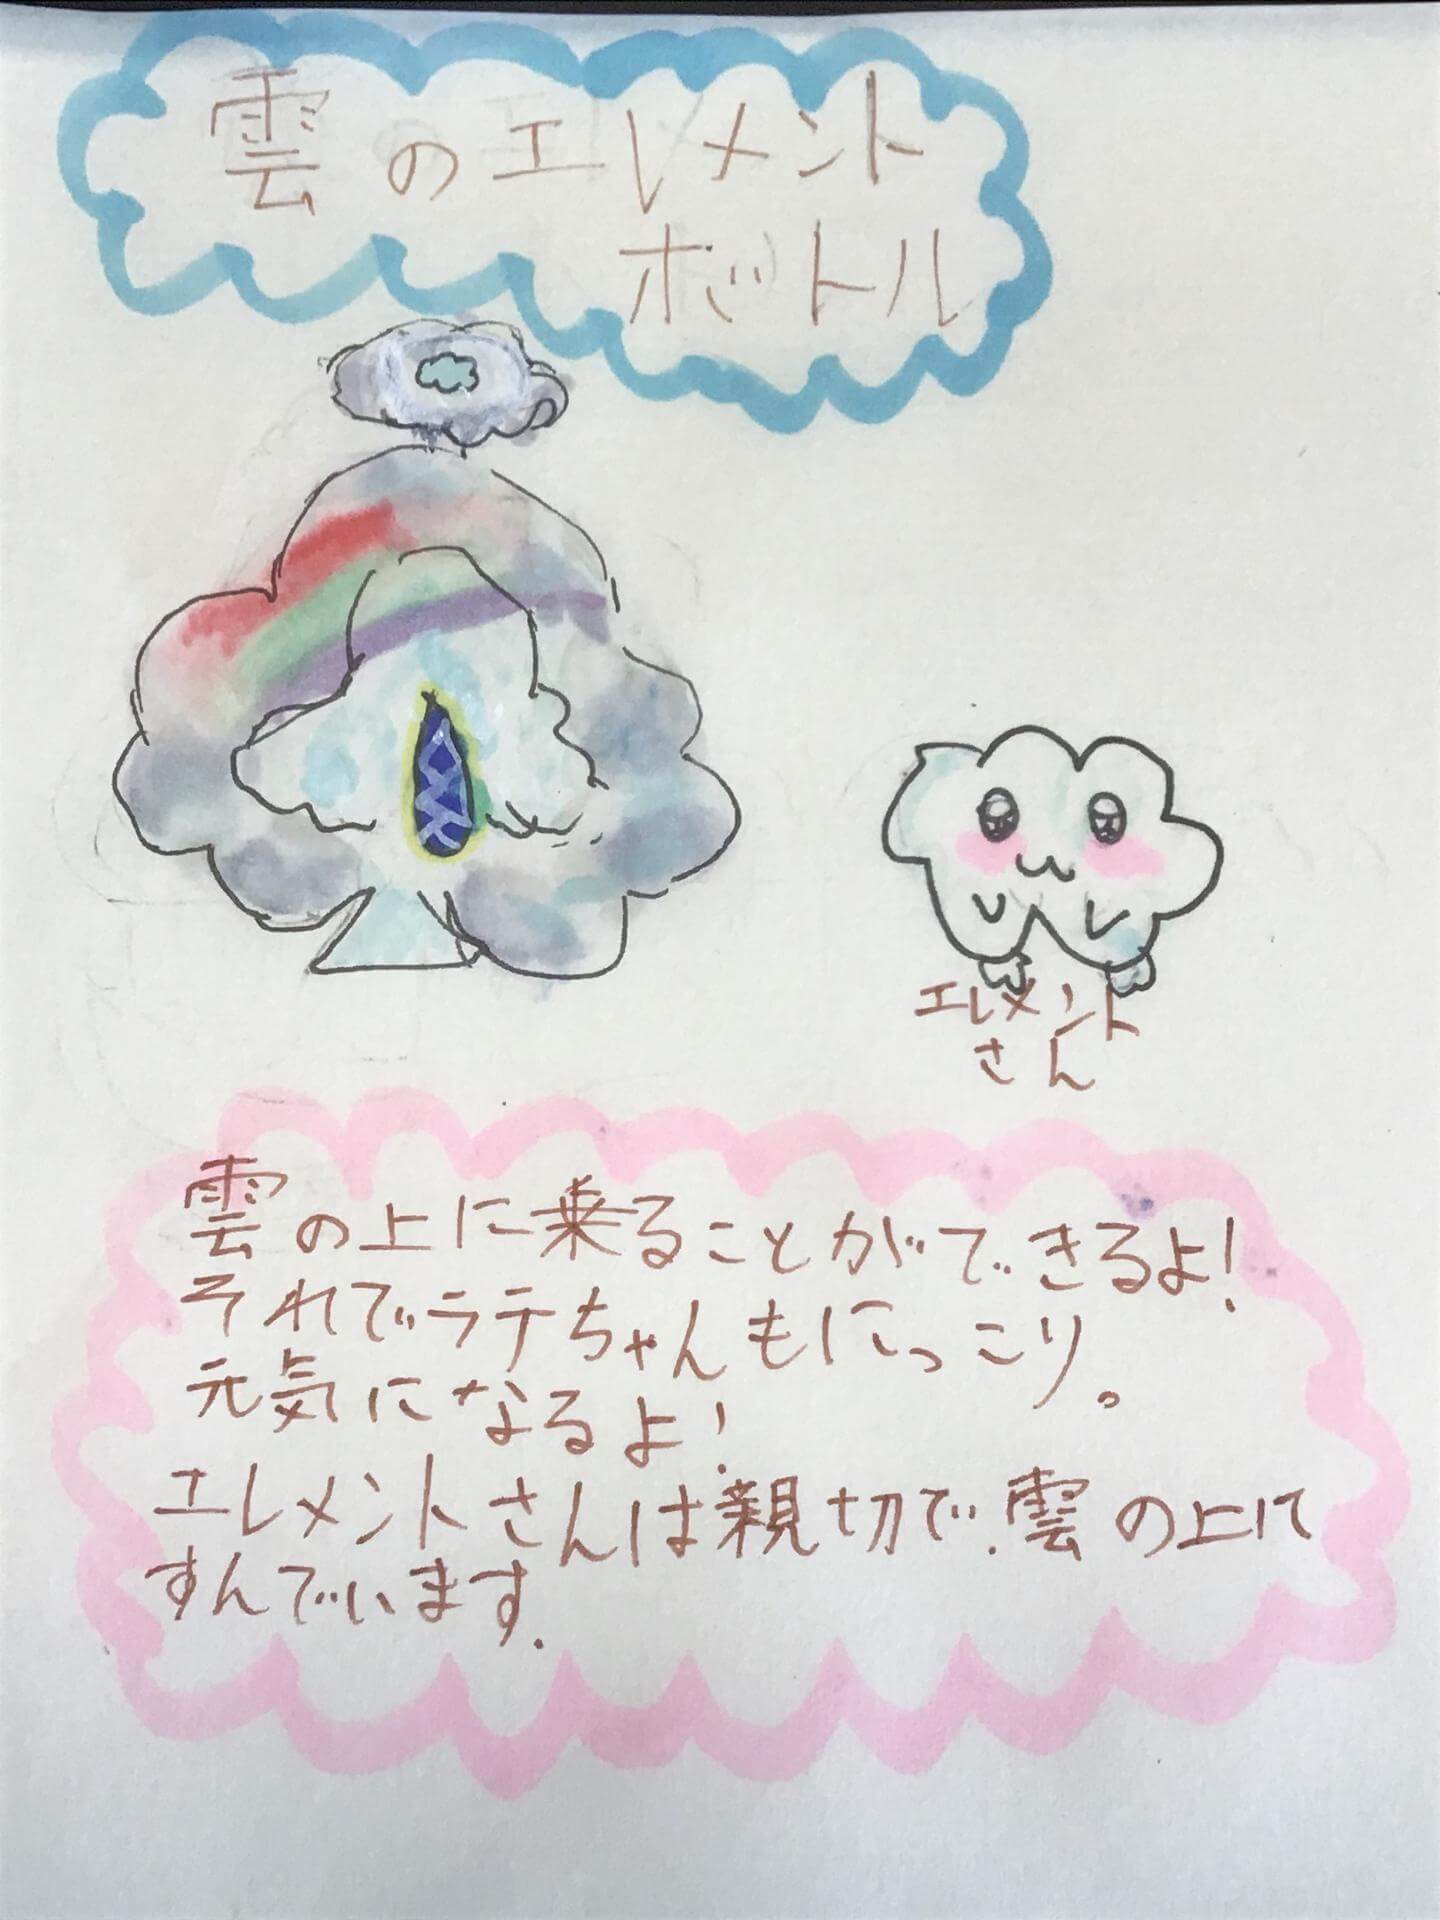 雲のエレメント
ボトル
エレメント
さん
雲の上に乗ることができるよ!
それでラテちゃんもにっこり。
元気になるよ!
エレメントさんは親切で.雲の上に
すんでいます.